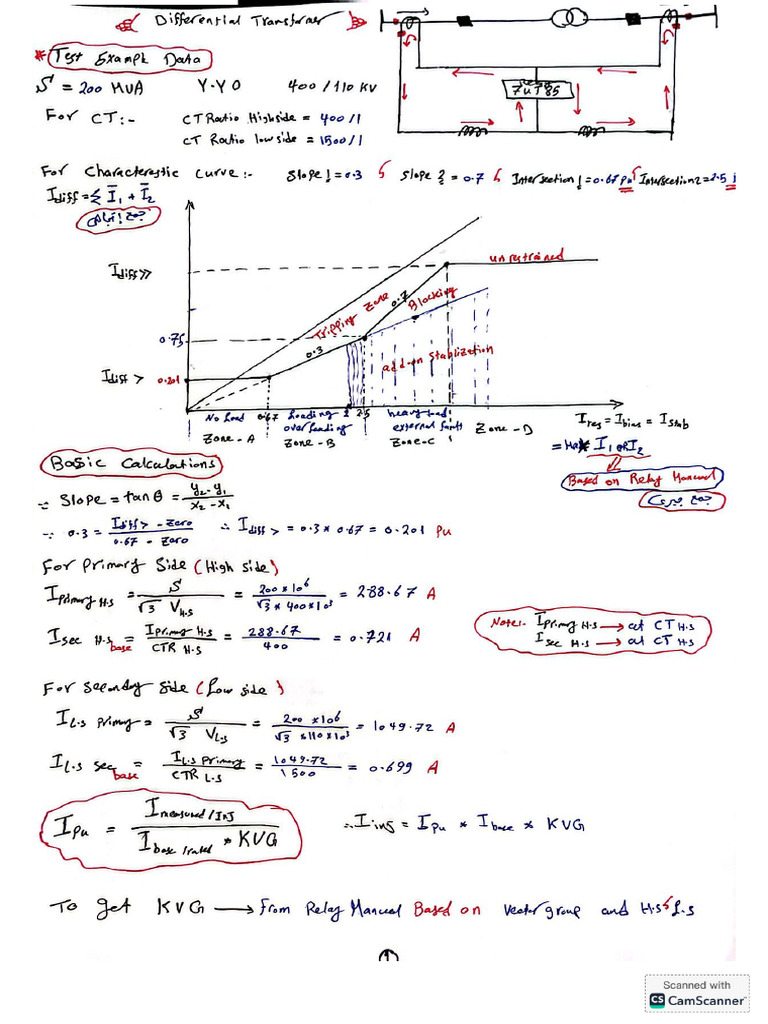 Differential Transformer
* Test Example Data
S = 200 MVA Y-Y0 400/110 KV
For CT:- CT Ratio High side = 400/1
CT Ratio low side = 1500/1
Relay
7UT85
For Characterestic Curve:- Slope 1 = 0.3 Slope 2 = 0.7 Intersection 1 = 0.67 Pu Intersection 2 = 2.5
Idiff = Σ I1 + I2
Idiff>>
unrestrained
Tripping Zone
0.7
Blocking
0.75
0.3
add-on stablization
Idiff> 0.201
No load 0.67 Loading 2 2.5 heavy load
over loading external faults
Zone-A Zone-B Zone-C Zone-D
Ires = Ibias = Istab
= Max I1 or I2
Based on Relay Manual
Basic Calculations
∵ Slope = tan θ = y2-y1 / x2-x1
∵ 0.3 = Idiff> - Zero / 0.67 - Zero ∴ Idiff> = 0.3 * 0.67 = 0.201 Pu
For Primary Side (High side)
IPrimary H.S = S / √3 VH.S = 200*10^6 / √3*400*10^3 = 288.67 A
Isec H.S base = IPrimary H.S / CTR H.S = 288.67 / 400 = 0.721 A
Note:- IPrimary H.S → at CT H.S
Isec H.S → at CT H.S
For Secondry Side (Low side)
IL.S Primary = S / √3 VL.S = 200*10^6 / √3*110*10^3 = 1049.72 A
IL.S sec base = IL.S Primary / CTR L.S = 1049.72 / 1500 = 0.699 A
IPu = Imeasured/INJ / Ibase/rated * KVG
∴ Iinj = IPu * Ibase * KVG
To get KVG → From Relay Manual Based on Vector group and H.S L.S
1
Scanned with
CS CamScanner